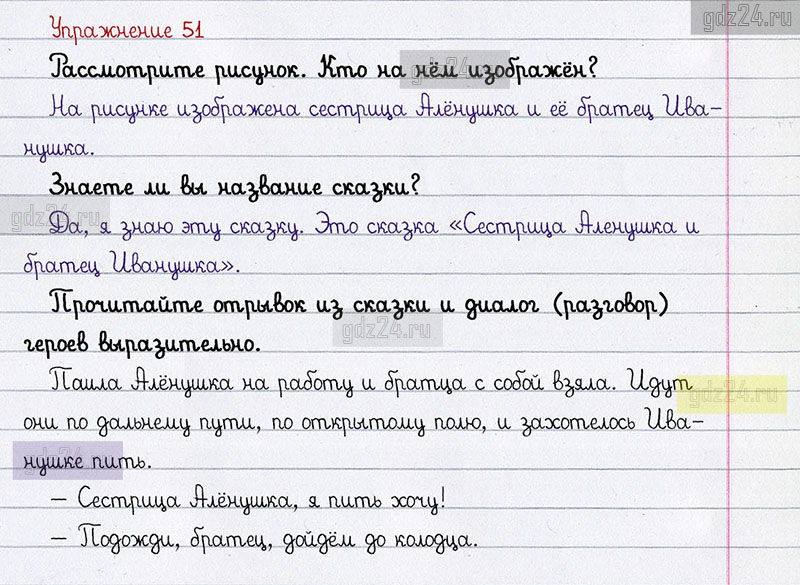 gdz24.ru
Упражнение 51
Рассмотрите рисунок. Кто на нём изображён?
gdz24.ru
На рисунке изображена сестрица Алёнушка и её братец Ива-
нушка.
Знаете ли вы название сказки?
gdz24.ru
Да, я знаю эту сказку. Это сказка «Сестрица Аленушка и
братец Иванушка».
Прочитайте отрывок из сказки и диалог (разговор)
gdz24.ru
героев выразительно.
Пашла Алёнушка на работу и братца с собой взяла. Идут
gdz24.ru
они по дальнему пути, по открытому полю, и захотелось Ива-
нушке пить.
gdz24.ru
– Сестрица Алёнушка, я пить хочу!
– Подожди, братец, дойдём до колодца.